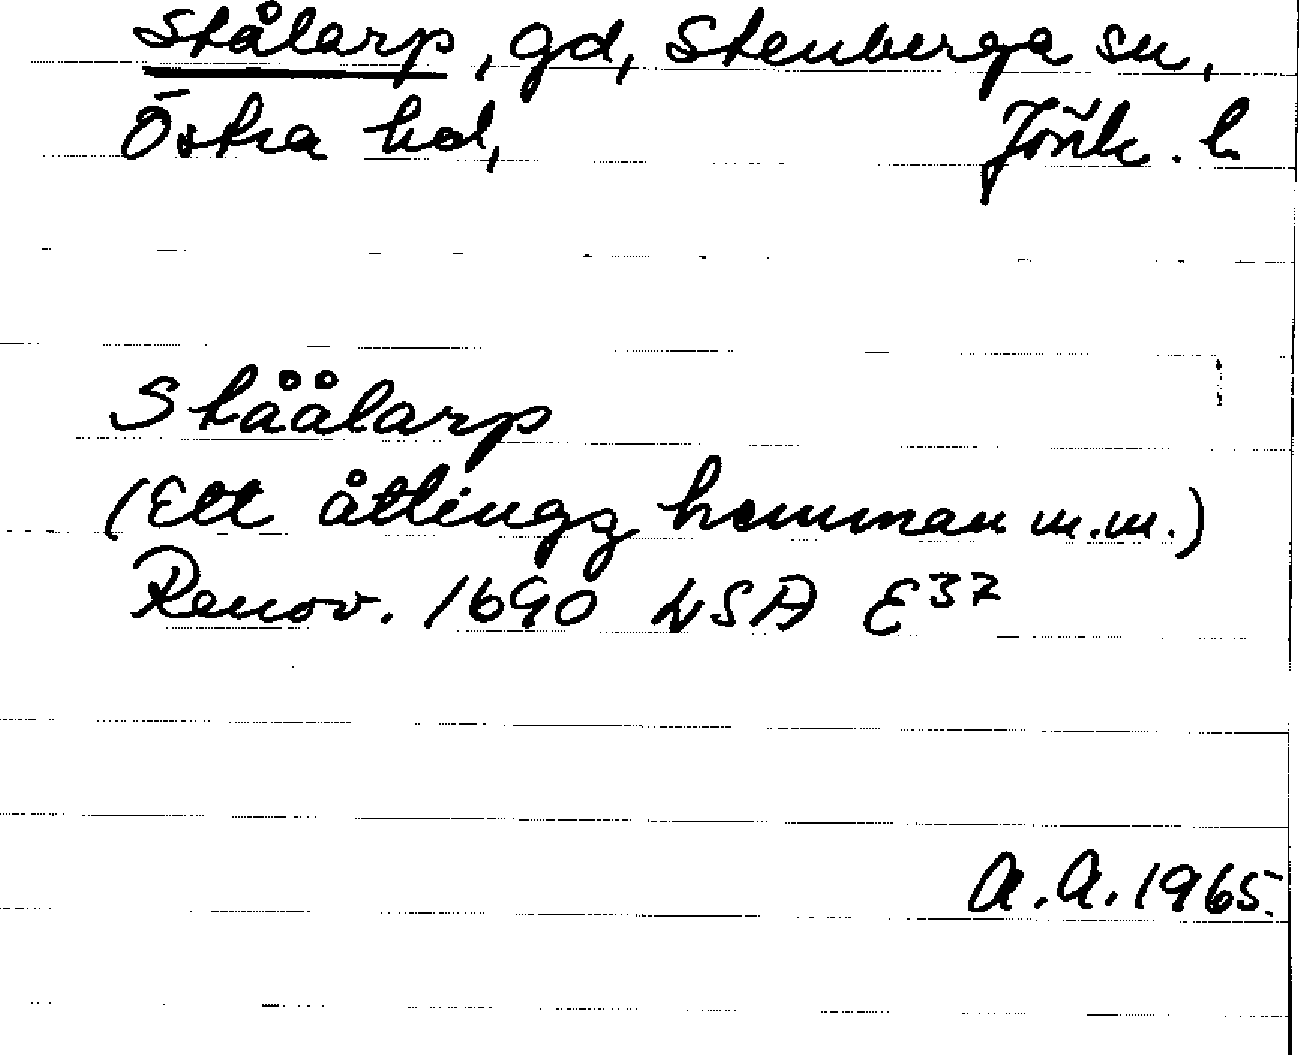 Stålarp, gd, Stenberga sn,
Östra hd, Jönk. l.
Ståålarp
(Ett åttingz hemman m.m.)
Renov. 1690 LSA E37
A.A. 1965.